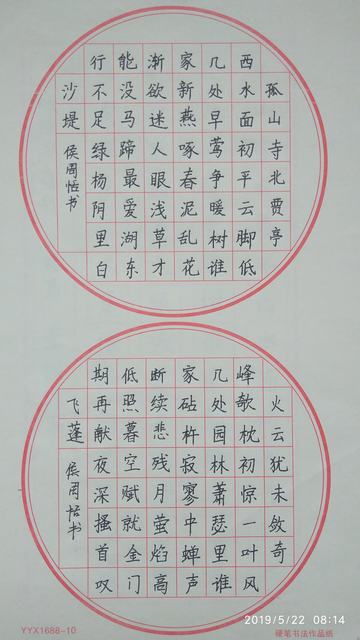 孤山寺北贾亭
西水面初平云脚低
几处早莺争暖树谁
家新燕啄春泥乱花
渐欲迷人眼浅草才
能没马蹄最爱湖东
行不足绿杨阴里白
沙堤
侯周恬书
火云犹未敛奇
峰欹枕初惊一叶风
几处园林萧瑟里谁
家砧杵寂寥中蝉声
断续悲残月萤焰高
低照暮空赋就金门
期再献夜深搔首叹
飞蓬
侯周恬书
YYX1688-10
硬笔书法作品纸
2019/5/22 08:14